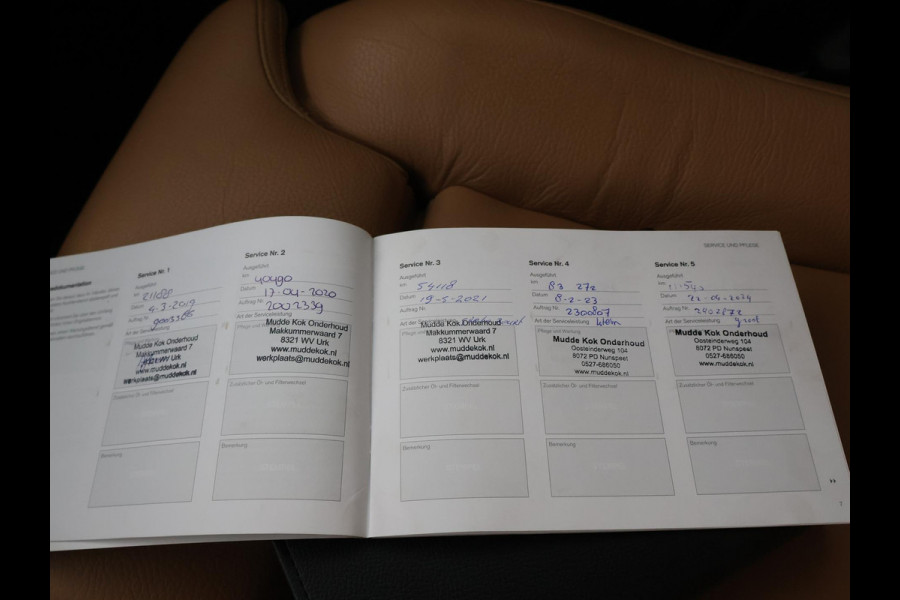 SERVICE UND PFLEGE
Service Nr. 1
Ausgeführt
km
Datum 4-3-2019
Auftrag Nr.
Art der Serviceleistung
Mudde Kok Onderhoud
Makkummerwaard 7
8321 WV Urk
www.muddekok.nl
werkplaats@muddekok.nl
Zusätzlicher Öl- und Filterwechsel
Bemerkung
Service Nr. 2
Ausgeführt
km 40490
Datum 17-04-2020
Auftrag Nr. 2002339
Art der Serviceleistung
Mudde Kok Onderhoud
Makkummerwaard 7
8321 WV Urk
www.muddekok.nl
werkplaats@muddekok.nl
Zusätzlicher Öl- und Filterwechsel
Bemerkung
Service Nr. 3
Ausgeführt
km 54118
Datum 19-5-2021
Auftrag Nr.
Art der
Mudde Kok Onderhoud
Makkummerwaard 7
8321 WV Urk
www.muddekok.nl
werkplaats@muddekok.nl
Zusätzlicher Öl- und Filterwechsel
Bemerkung
Service Nr. 4
Ausgeführt
km 83 272
Datum 8-2-23
Auftrag Nr. 2300807
Art der Serviceleistung klein
Pflege und Wartung
Mudde Kok Onderhoud
Oosteinderweg 104
8072 PD Nunspeet
0527-686050
www.muddekok.nl
Zusätzlicher Öl- und Filterwechsel
Bemerkung
SERVICE UND PFLEGE
Service Nr. 5
Ausgeführt
km
Datum 22-05-2024
Auftrag Nr. 2402872
Art der Serviceleistung groot
Mudde Kok Onderhoud
Oosteinderweg 104
8072 PD Nunspeet
0527-686050
www.muddekok.nl
Zusätzlicher Öl- und Filterwechsel
Bemerkung
››